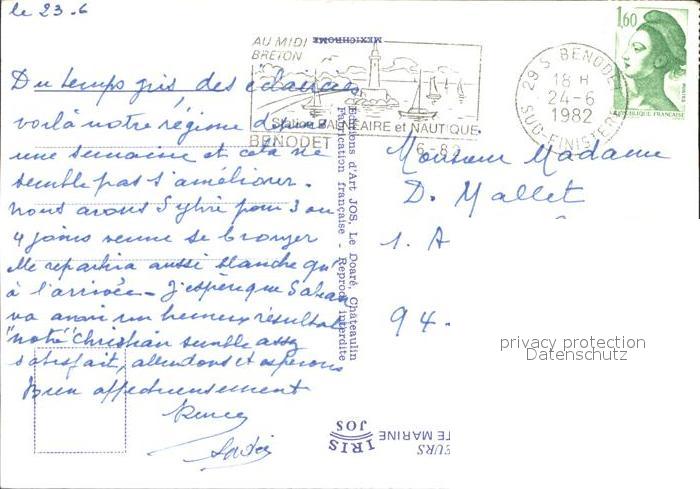 le 23.6
Du temps gris, des éclaircies
voilà notre région depuis
une semaine et cela ne
semble pas s'améliorer.
nous avons Sylvie pour 3 ou
4 jours venue se bronzer
elle repartira aussi blanche qu'
à l'arrivée - J'espère que
va avoir un heureux résultat
"notre" Christian semble assez
satisfait, attendons et espérons
Bien affectueusement
AU MIDI
BRETON
Station BALNEAIRE et NAUTIQUE
BENODET
6-82
MEXICHROME
Editions d'Art JOS, Le Doaré, Châteaulin
Fabrication française - Reprod. interdite
29 S BENODET
18 H
24-6
1982
SUD-FINISTERE
1,60
POSTES
REPUBLIQUE FRANCAISE
Monsieur Madame
D. Mallet
1. A
94.
privacy protection
Datenschutz
IRIS
JOS
EURS
TE MARINE